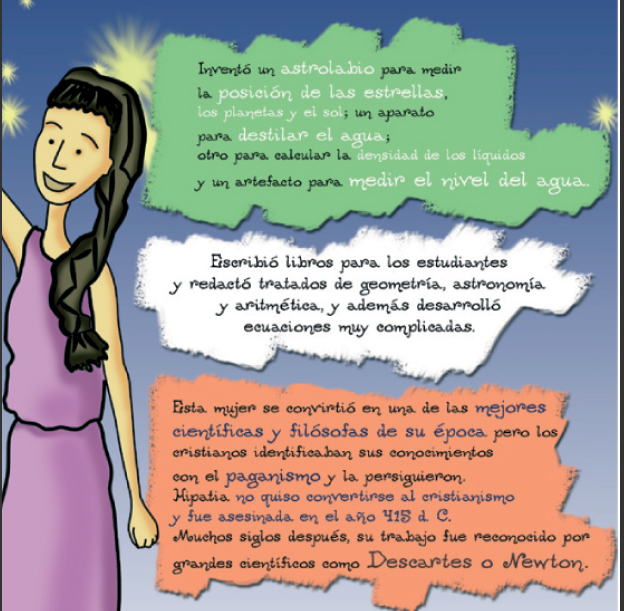 Inventó un astrolabio para medir
la posición de las estrellas,
los planetas y el sol; un aparato
para destilar el agua;
otro para calcular la densidad de los líquidos
y un artefacto para medir el nivel del agua.
Escribió libros para los estudiantes
y redactó tratados de geometría, astronomía
y aritmética, y además desarrolló
ecuaciones muy complicadas.
Esta mujer se convirtió en una de las mejores
científicas y filósofas de su época pero los
cristianos identificaban sus conocimientos
con el paganismo y la persiguieron.
Hipatia no quiso convertirse al cristianismo
y fue asesinada en el año 415 d. C.
Muchos siglos después, su trabajo fue reconocido por
grandes científicos como Descartes o Newton.